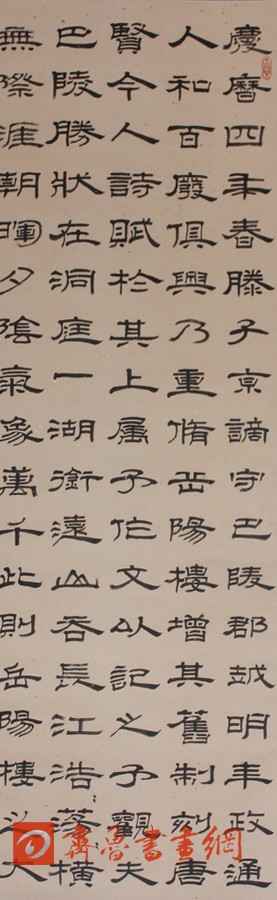 慶曆四年春滕子京謫守巴陵郡越明年政通
人和百廢俱興乃重脩岳陽樓增其舊制刻唐
賢今人詩賦於其上屬予作文以記之予觀夫
巴陵勝狀在洞庭一湖銜遠山吞長江浩蕩橫
無際涯朝暉夕陰氣象萬千此則岳陽樓之大
齊魯書畫網